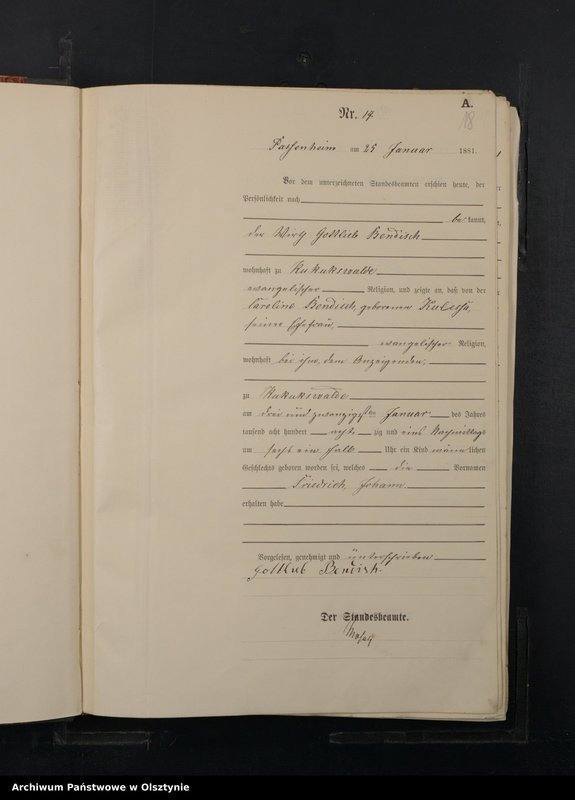 A.
18
Nr. 17
Passenheim am 25 Januar 1881.
Vor dem unterzeichneten Standesbeamten erschien heute, der
Persönlichkeit nach
be kannt,
der Wirth Gottlieb Bendisch
wohnhaft zu Kukukswalde
evangelischer Religion, und zeigte an, daß von der
Caroline Bendisch, geborenen Kulessa,
seiner Ehefrau,
evangelischer Religion,
wohnhaft bei ihm, dem Anzeigenden,
zu Kukukswalde
am drei und zwanzigsten Januar des Jahres
tausend acht hundert acht zig und eins Nachmittags
um sechs ein halb Uhr ein Kind männlichen
Geschlechts geboren worden sei, welches die Vornamen
Friedrich Johann
erhalten habe
Vorgelesen, genehmigt und unterschrieben
Gottlieb Bendisch.
Der Standesbeamte.
Archiwum Państwowe w Olsztynie